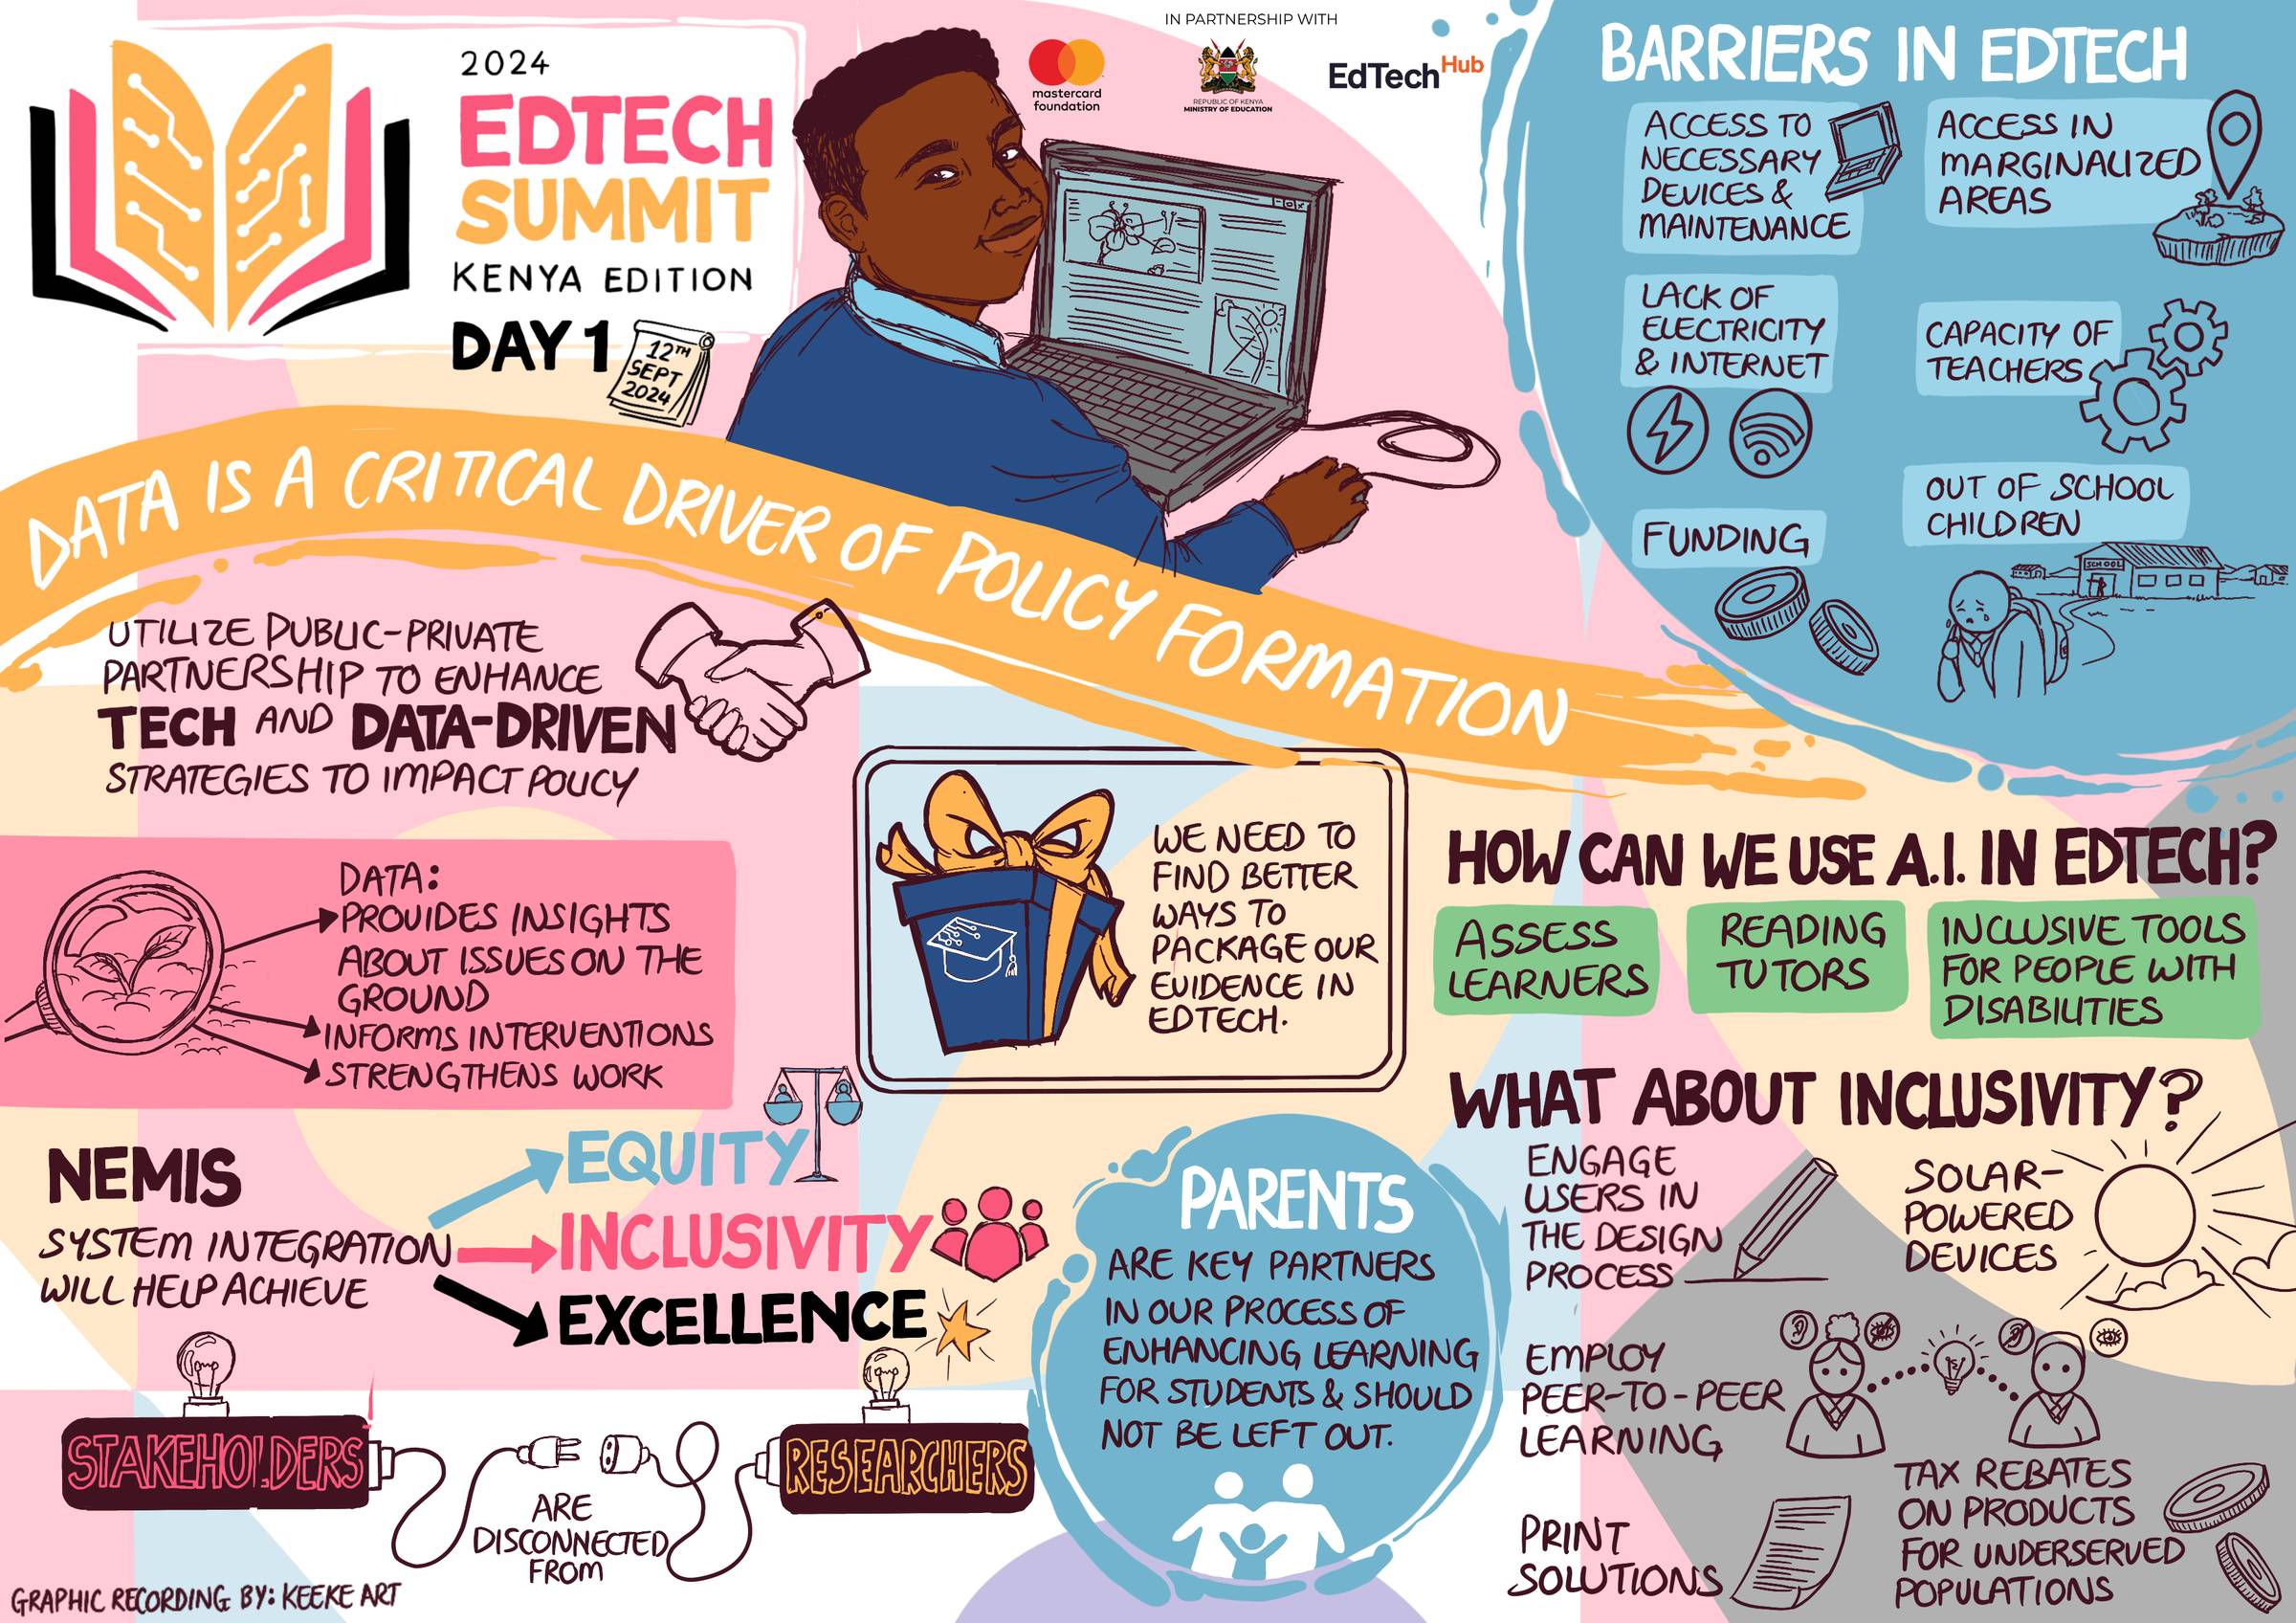 2024
EDTECH
SUMMIT
KENYA EDITION
DAY 1
12TH
SEPT
2024
IN PARTNERSHIP WITH
mastercard
foundation
REPUBLIC OF KENYA
MINISTRY OF EDUCATION
EdTech Hub
BARRIERS IN EDTECH
ACCESS TO
NECESSARY
DEVICES &
MAINTENANCE
ACCESS IN
MARGINALIZED
AREAS
LACK OF
ELECTRICITY
& INTERNET
CAPACITY OF
TEACHERS
FUNDING
OUT OF SCHOOL
CHILDREN
SCHOOL
DATA IS A CRITICAL DRIVER OF POLICY FORMATION
UTILIZE PUBLIC-PRIVATE
PARTNERSHIP TO ENHANCE
TECH AND DATA-DRIVEN
STRATEGIES TO IMPACT POLICY
DATA:
PROVIDES INSIGHTS
ABOUT ISSUES ON THE
GROUND
INFORMS INTERVENTIONS
STRENGTHENS WORK
WE NEED TO
FIND BETTER
WAYS TO
PACKAGE OUR
EVIDENCE IN
EDTECH.
HOW CAN WE USE A.I. IN EDTECH?
ASSESS
LEARNERS
READING
TUTORS
INCLUSIVE TOOLS
FOR PEOPLE WITH
DISABILITIES
NEMIS
SYSTEM INTEGRATION
WILL HELP ACHIEVE
EQUITY
INCLUSIVITY
EXCELLENCE
STAKEHOLDERS
ARE
DISCONNECTED
FROM
RESEARCHERS
PARENTS
ARE KEY PARTNERS
IN OUR PROCESS OF
ENHANCING LEARNING
FOR STUDENTS & SHOULD
NOT BE LEFT OUT.
WHAT ABOUT INCLUSIVITY?
ENGAGE
USERS IN
THE DESIGN
PROCESS
SOLAR-
POWERED
DEVICES
EMPLOY
PEER-TO-PEER
LEARNING
PRINT
SOLUTIONS
TAX REBATES
ON PRODUCTS
FOR UNDERSERVED
POPULATIONS
GRAPHIC RECORDING BY: KEEKE ART